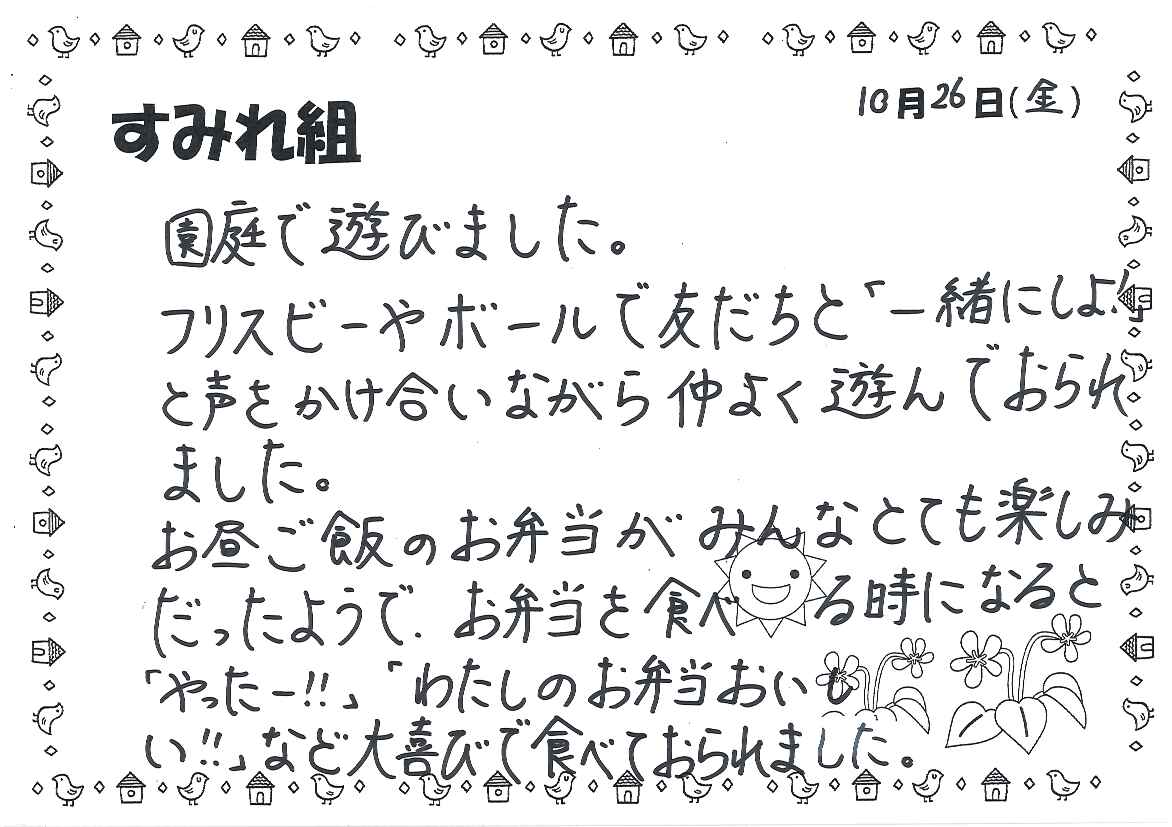 10月26日(金)
すみれ組
園庭で遊びました。
フリスビーやボールで友だちと「一緒にしよ!」
と声をかけ合いながら仲よく遊んでおられ
ました。
お昼ご飯のお弁当がみんなとても楽しみ
だったようで、お弁当を食べる時になると
「やったー!!」「わたしのお弁当おいし
い!!」など大喜びで食べておられました。